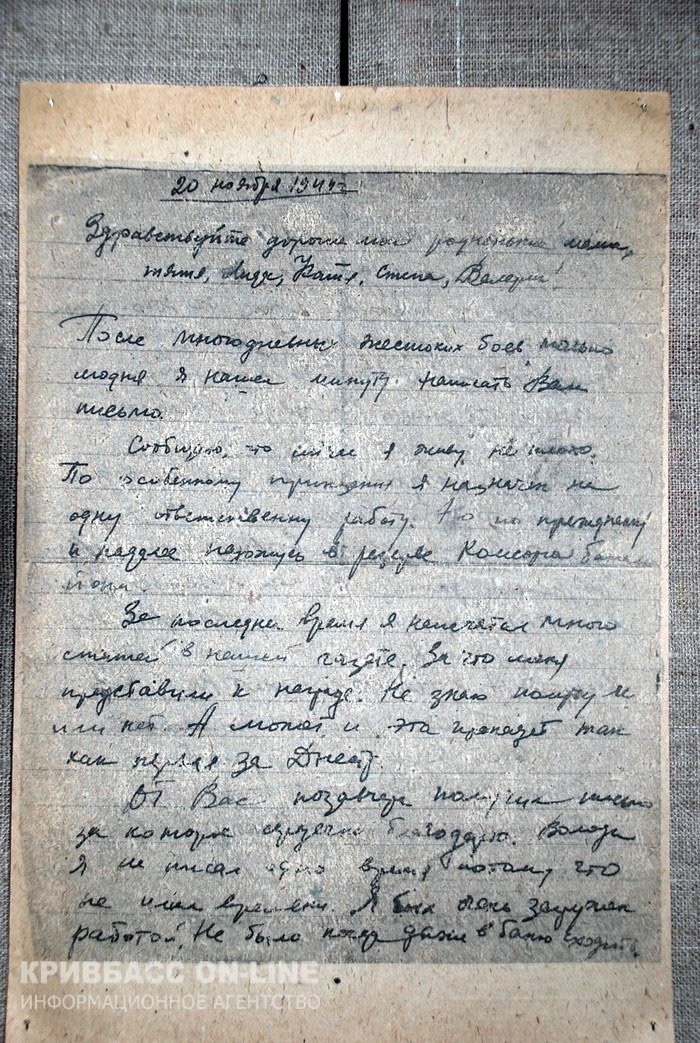 20 ноября 1944 г
Здравствуйте дорогие мои родненькие мама,
тятя, Лида, Катя, Степа, Валерий!
После многодневных жестоких боев только
я нашел минуту написать Вам
письмо.
Сообщаю, что я живу не плохо.
По особенному я назначен на
одну ответственну работу. Но по прежднему
и находжусь в резерве
За последнее время я напечатал много
статей в нашей газете. За что меня
представили к награде. Не знаю получу ли
или нет. А может и эта пропадет так
как первая за Днестр.
От Вас позавчера получил письмо
за которое сердечно благодарю. Володе
я не писал одно время потому что
не имел времени. Я был очень загружен
работой. Не было когда даже в баню сходить.
КРИВБАСС ON-LINE
ИНФОРМАЦИОННОЕ АГЕНТСТВО